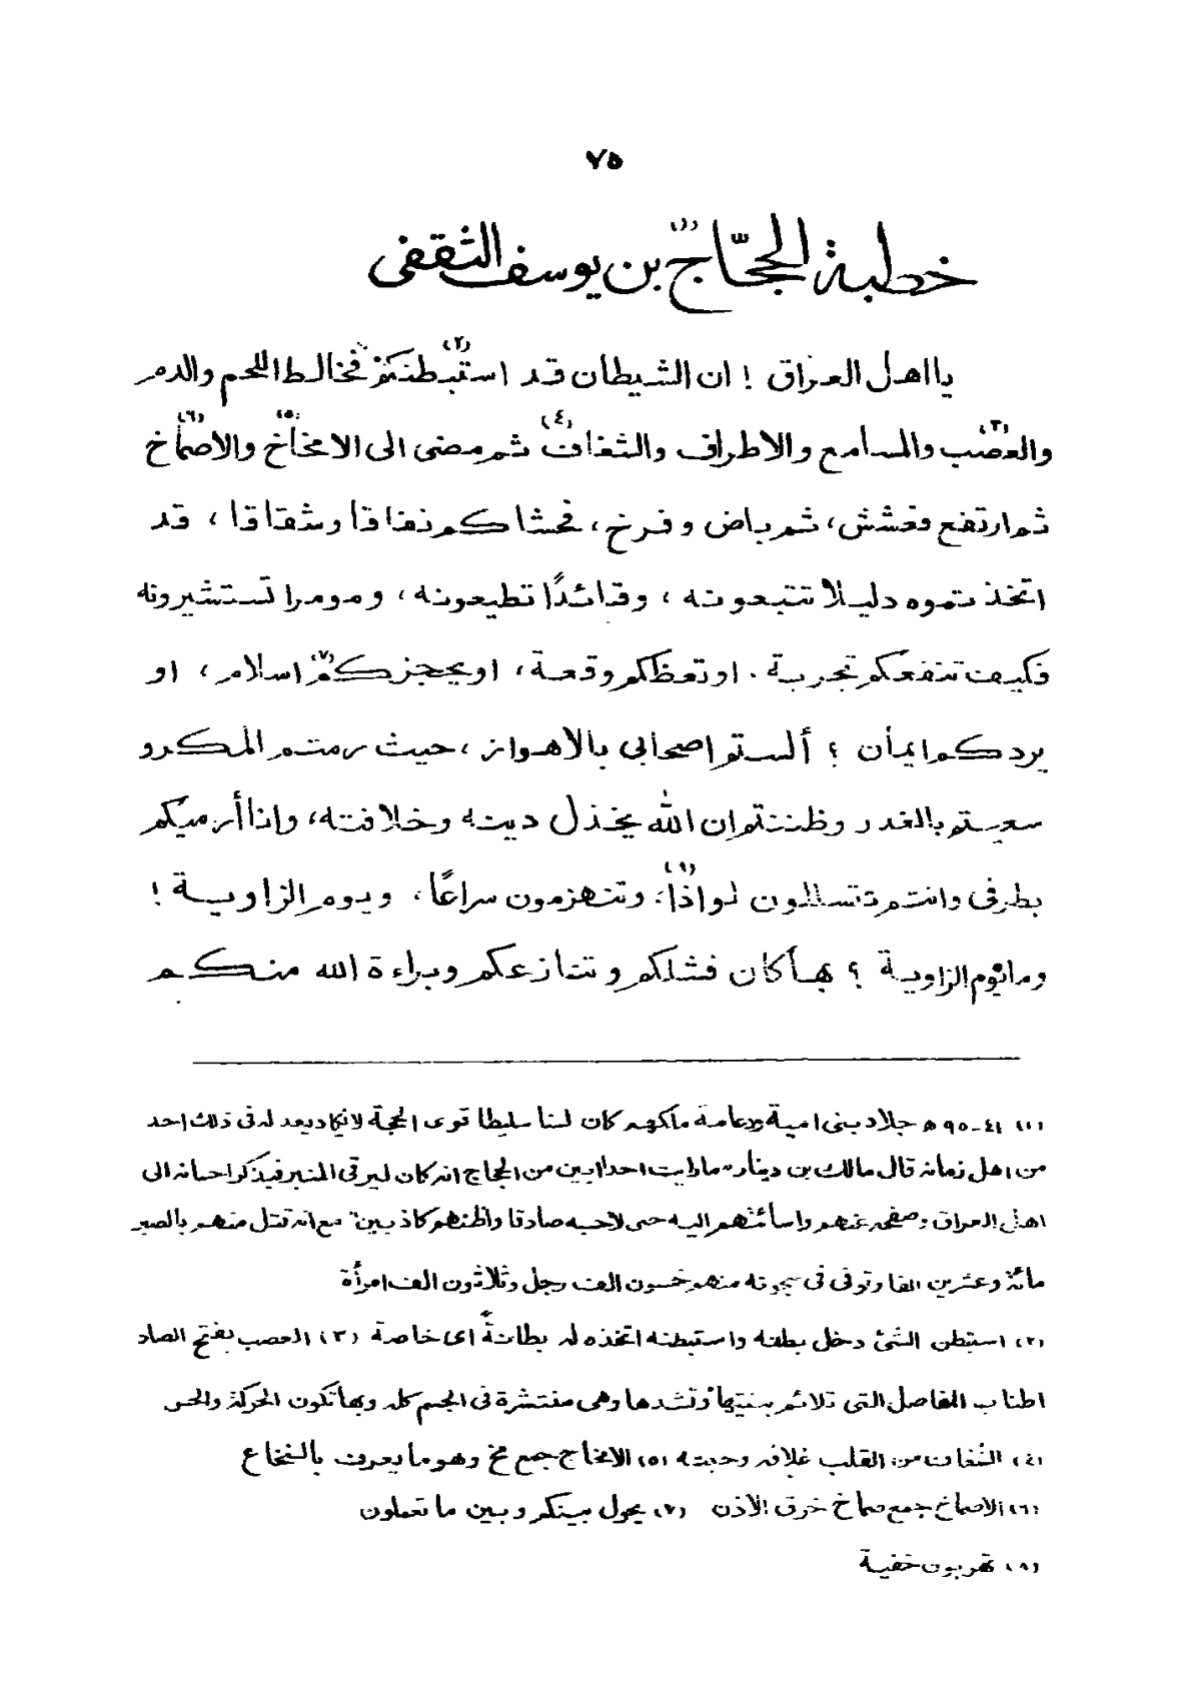 ٧٥
خطبة الحجّاج(١) بن يوسف الثقفى
يا اهل العراق ! ان الشيطان قد استبطنكم(٢) فخالط اللحم والدم
والعصب(٣) والمسامع والاطراف والشغاف(٤) ثم مضى الى الامخاخ(٥) والاصماخ(٦)
ثم ارتفع فعشش، ثم باض وفرخ، فحشاكم نفاقا وشقاقا، قد
اتخذتموه دليلا تتبعونه، وقائدًا تطيعونه، ومومرا تستشيرونه
فكيف تنفعكم تجربة . او تعظكم وقعة، او يحجزكم(٧) اسلام، او
يردكم ايمان ؟ ألستم اصحابى بالاهواز، حيث رمتم المكر و
سعيتم بالغدر وظننتم ان الله يخذل دينه وخلافته، وانا أرميكم
بطرفى وانتم تتسللون لواذًا(٨)، وتنهزمون سراعًا، ويوم الزاوية !
وما يوم الزاوية ؟ بها كان فشلكم وتنازعكم وبراءة الله منكم
(١) ٤١-٩٥ ه جلاد بنى امية ودعامة ملكهم كان لسنا سليطا قوى الحجة لا يكاد يعد له فى ذلك احد
من اهل زمانه قال مالك بن دينار "ما رايت احدا ابين من الحجاج انه كان ليرقى المنبر فيذكر احسانه الى
اهل العراق وصفحه عنهم واسائتهم اليه حتى لاحسبه صادقا واظنهم كاذبين" مع انه قتل منهم بالصبر
مائة وعشرين الفا وتوفى فى سجونه منهم خمسون الف رجل وثلاثون الف امرأة
(٢) استبطن الشئ دخل بطنه واستبطنه اتخذه له بطانةً اى خاصة (٣) العصب بفتح الصاد
اطناب المفاصل التى تلائم بينها وتشدها وهى منتشرة فى الجسم كله وبها تكون الحركة والحس
(٤) الشغاف من القلب غلافه وحبته (٥) الامخاخ جمع مخ وهو ما يعرف بالنخاع
(٦) الاصماخ جمع صماخ خرق الاذن (٧) يحول بينكم وبين ما تعملون
(٨) تهربون خفية